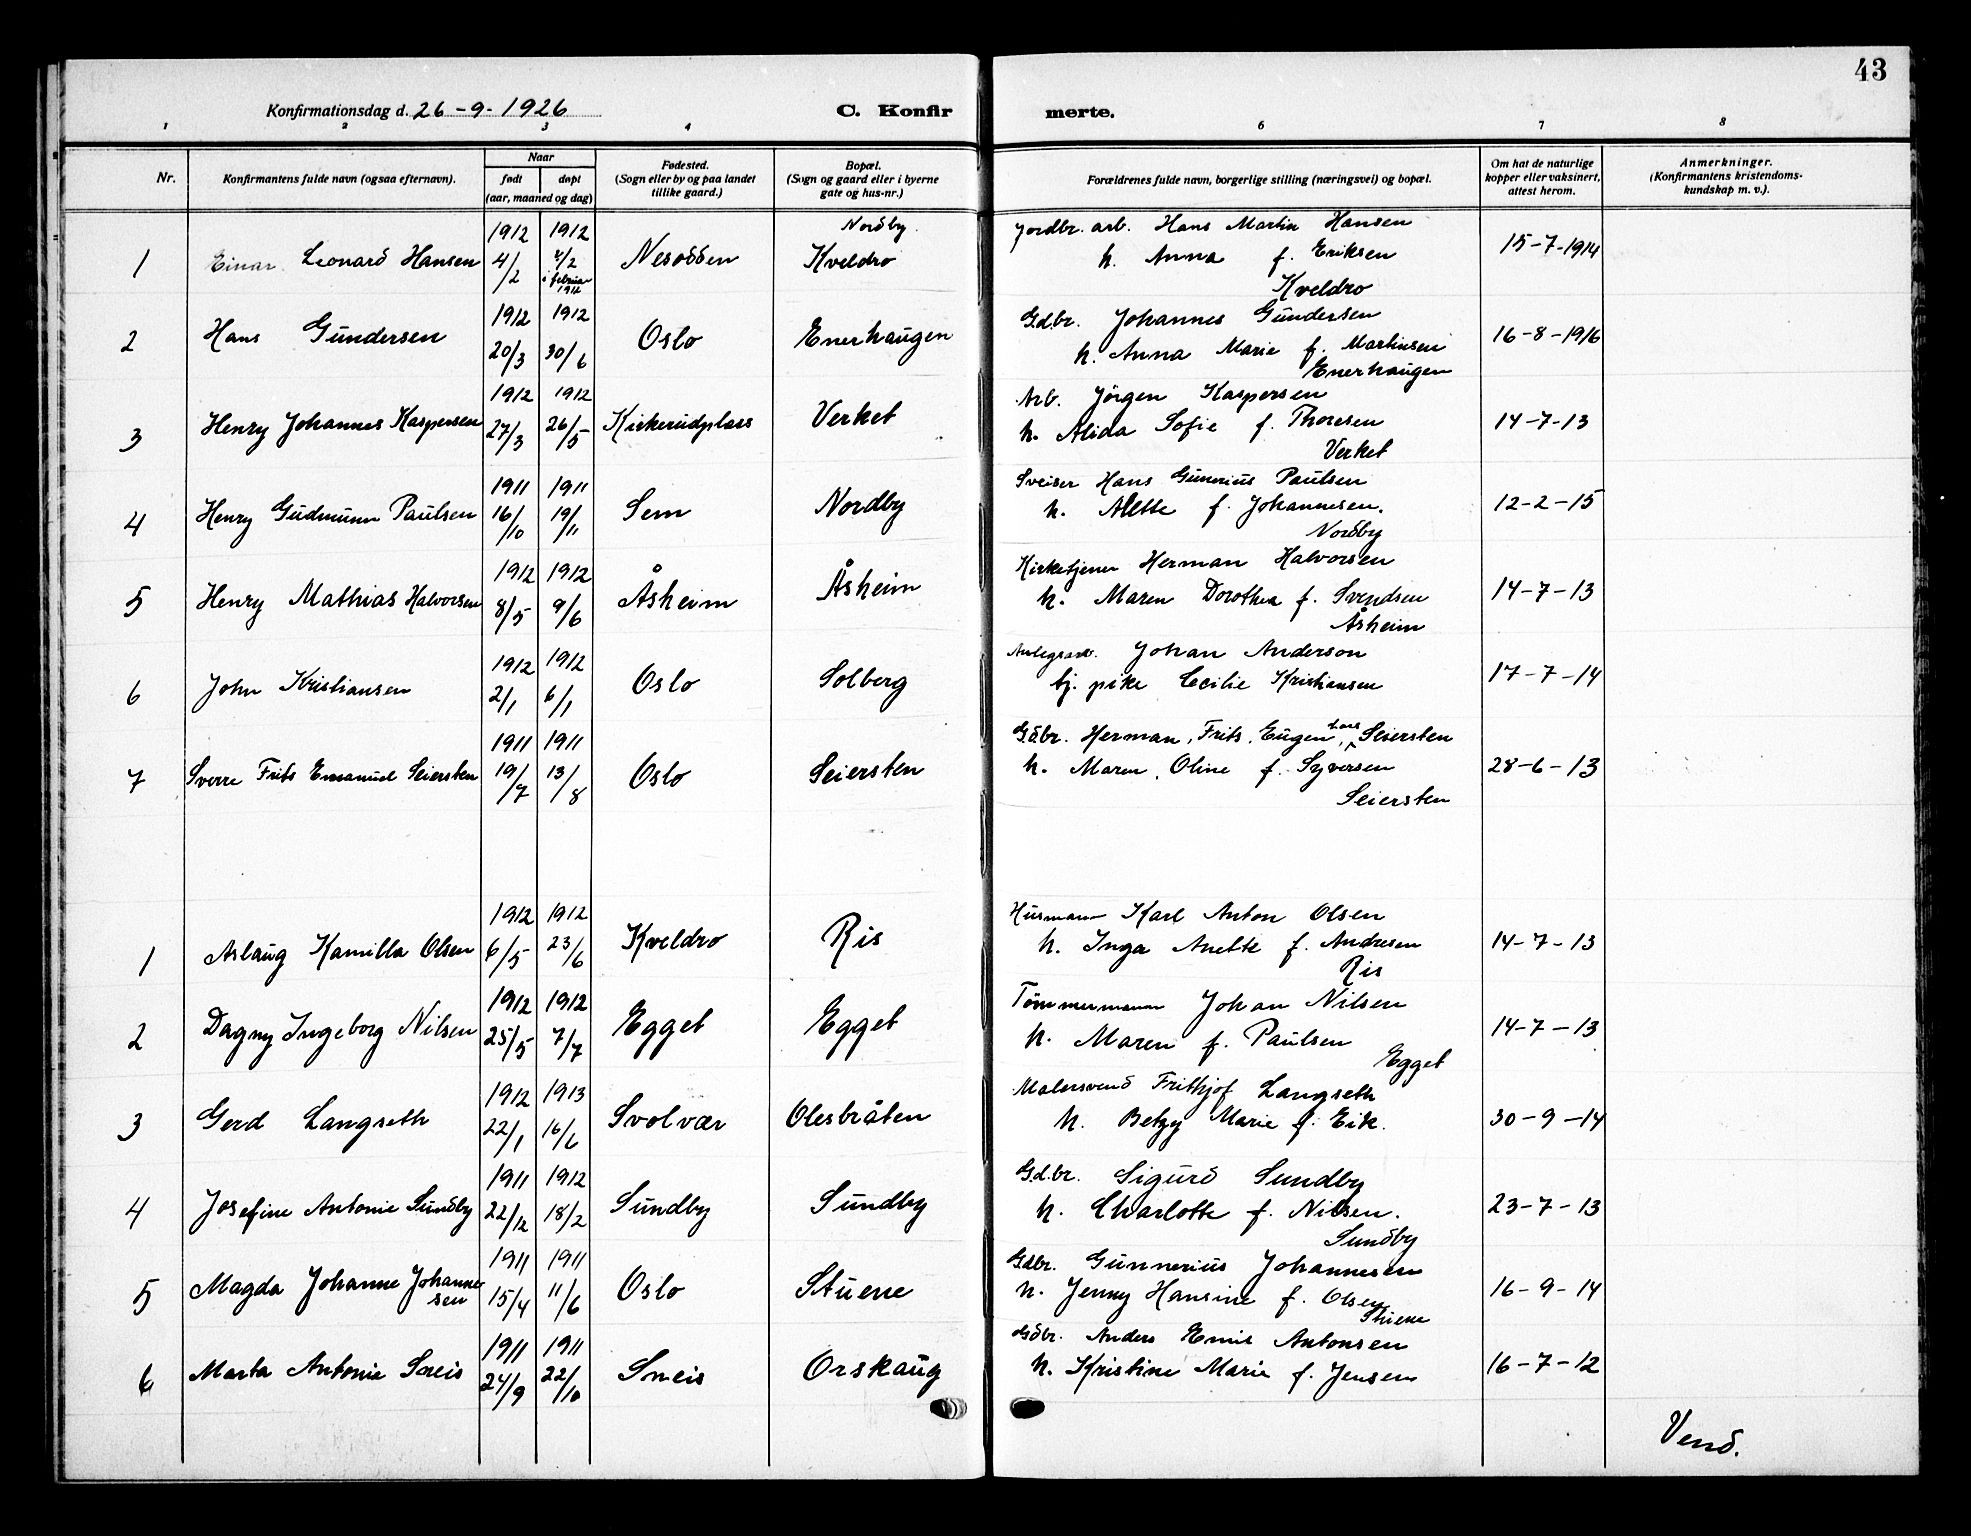 43
Konfirmationsdag d. 26-9-1926
C. Konfir
merte.
1 2 3 4 6 7 8
Nr.
Konfirmantens fulde navn (ogsaa efternavn).
Naar
født
døpt
(aar, maaned og dag)
Fødested.
(Sogn eller by og paa landet
tillike gaard.)
Bopæl.
(Sogn og gaard eller i byerne
gate og hus-nr.)
Forældrenes fulde navn, borgerlige stilling (næringsvei) og bopæl.
Om hat de naturlige
kopper eller vaksinert,
attest herom.
Anmerkninger.
(Konfirmantens kristendoms-
kundskap m. v.).
1 Einar Leonard Hansen 1912 4/2 1912 i februar 1912 Nesodden Nordby Kveldro
Jordbr. arb. Hans Martin Hansen
h. Anna f. Eriksen
Kveldro
15-7-1914
2 Hans Gundersen 1912 20/3 1912 30/6 Oslo Enerhaugen
Gdbr. Johannes Gundersen
h. Anna Marie f. Martinsen
Enerhaugen
16-8-1916
3 Henry Johannes Kaspersen 1912 27/3 1912 26/5 Kirkerudplass Verket
Arb. Jörgen Kaspersen
h. Alida Sofie f. Thoresen
Verket
14-7-13
4 Henry Gudmunn Paulsen 1911 16/10 1911 19/11 Sem Nordby
Sveiser Hans Gunerius Paulsen
h. Alette f. Johannesen.
Nordby
12-2-15
5 Henry Mathias Halvorsen 1912 8/5 1912 9/6 Åsheim Åsheim
Kirketjener Herman Halvorsen
h. Maren Dorothea f. Svendsen
Åsheim
14-7-13
6 John Kristiansen 1912 2/1 1912 6/1 Oslo Solberg
Johan Anderson
tj. pike Cecilie Kristiansen
17-7-14
7 Sverre Frits Emanuel Seiersten 1911 19/7 1911 13/8 Oslo Seiersten
Gdbr. Herman, Frits, Eugen, Lars Seiersten
h. Maren, Oline f. Syversen
Seiersten
28-6-13
1 Aslaug Kamilla Olsen 1912 6/5 1912 23/6 Kveldro Ris
Husmann Karl Anton Olsen
h. Inga Anette f. Andresen
Ris
14-7-13
2 Dagny Ingeborg Nilsen 1912 25/5 1912 7/7 Egget Egget
Tömmermann Johan Nilsen
h. Maren f. Paulsen
Egget
14-7-13
3 Gerd Langseth 1912 22/1 1913 16/6 Svolvær Olesbråten
Malersvend Frithjof Langseth
h. Betzy Marie f. Eik.
30-9-14
4 Josefine Antonie Sundby 1911 22/12 1912 18/2 Sundby Sundby
Gd.br. Sigurd Sundby
h. Charlotte f. Nilsen.
Sundby
23-7-13
5 Magda Johanne Johannesen 1911 15/4 1911 11/6 Oslo Stuene
Gdbr. Gunnerius Johannesen
h. Jenny Hansine f. Olsen
16-9-14
6 Marta Antonie Sneis 1911 24/9 1911 22/10 Sneis Orskaug
Gdbr. Anders Emil Antonsen
h. Kristine Marie f. Jensen
16-7-12
Vend.